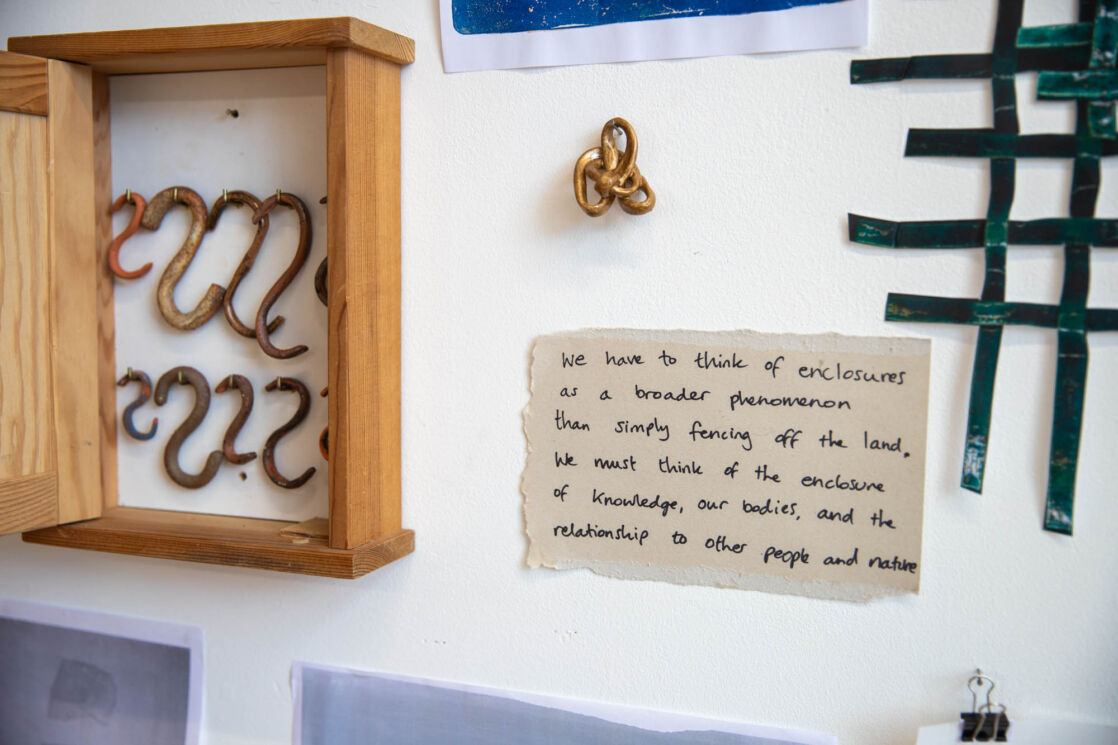 We have to think of enclosures
as a broader phenomenon
than simply fencing off the land.
We must think of the enclosure
of knowledge, our bodies, and the
relationship to other people and nature